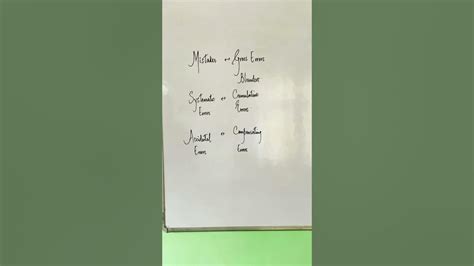 Mistakes or Gross Errors
Blunders
Systematic or Cumulative
Errors Errors
Accidental or Compensating
Errors Errors